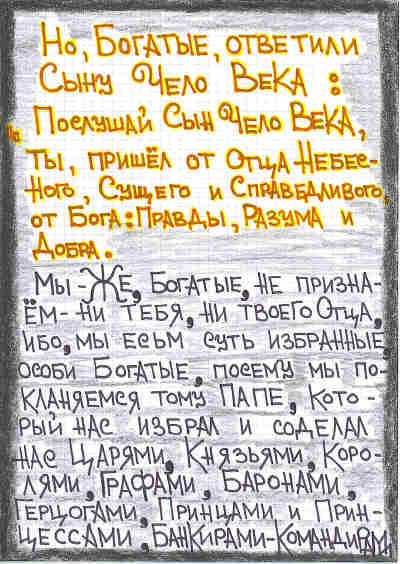 Но, Богатые, ответили
Сыну Чело Века :
„ Послушай Сын Чело Века,
ты, пришёл от Отца Небес-
ного, Сущего и Справедливого,
от Бога: Правды, Разума и
Добра.
Мы - Же, Богатые, не призна-
ём- ни тебя, ни твоего Отца,
ибо, мы есьм суть избранные,
особи Богатые, посему мы по-
кланяемся тому Папе, кото -
рый нас избрал и соделал
нас Царями, Князьями, Коро-
лями, Графами, Баронами,
Герцогами, Принцами и Прин-
цессами, Банкирами-Командирами,